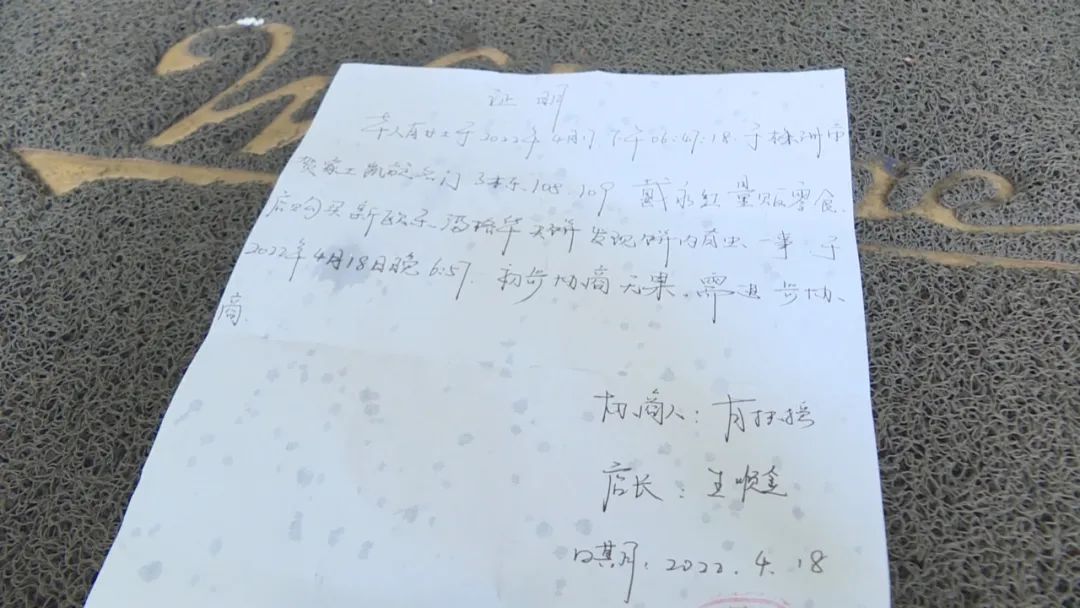 证明
本人肖女士于2022年4月17下午06:47:18于株洲市
贺家土凯旋 门3栋 108.109 戴永红量贩零食
店购买新欧乐 饼发现饼内有虫一事.于
2022年4月18日晚6:57.初步协商无果,需进步协
商.
协商人:肖
店长:王顺金
日期:2022.4.18